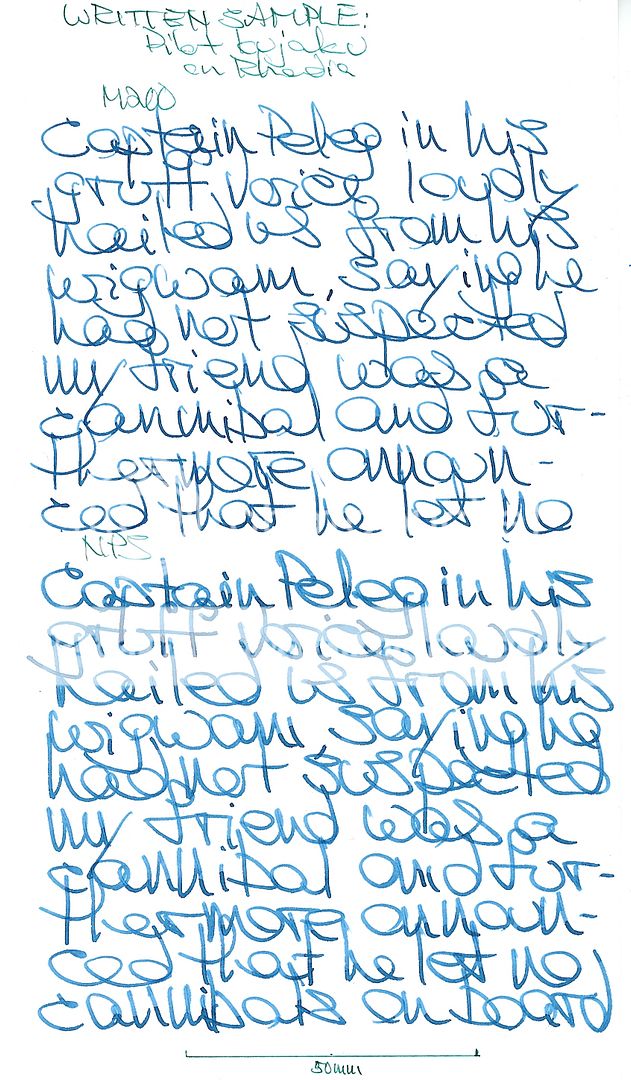 WRITTEN SAMPLE:
Pilot kujaku
on Rhodia
M200
Captain Peleg in his
gruff voice loudly
hailed us from his
wigwam, saying he
had not suspected
my friend was a
cannibal and fur-
thermore announ-
ced that he let no
NPS
Captain Peleg in his
gruff voice loudly
hailed us from his
wigwam, saying he
had not suspected
my friend was a
cannibal and fur-
thermore announ-
ced that he let no
cannibals on board
50mm